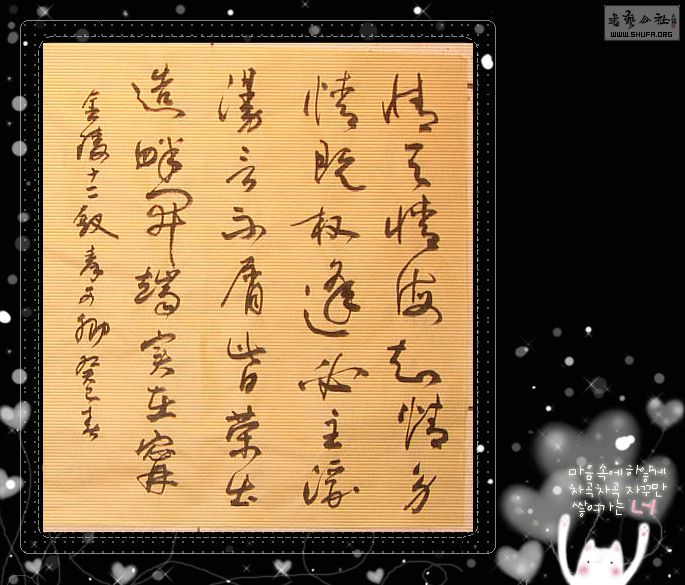 情天情海幻情身
情既相逢必主淫
漫言不肖皆榮出
造衅開端實在寧
金陵十二釵秦可卿癸巳春
書藝公社
WWW.SHUFA.ORG
마음속에 하얗게
차곡차곡 자꾸만
쌓여가는 너